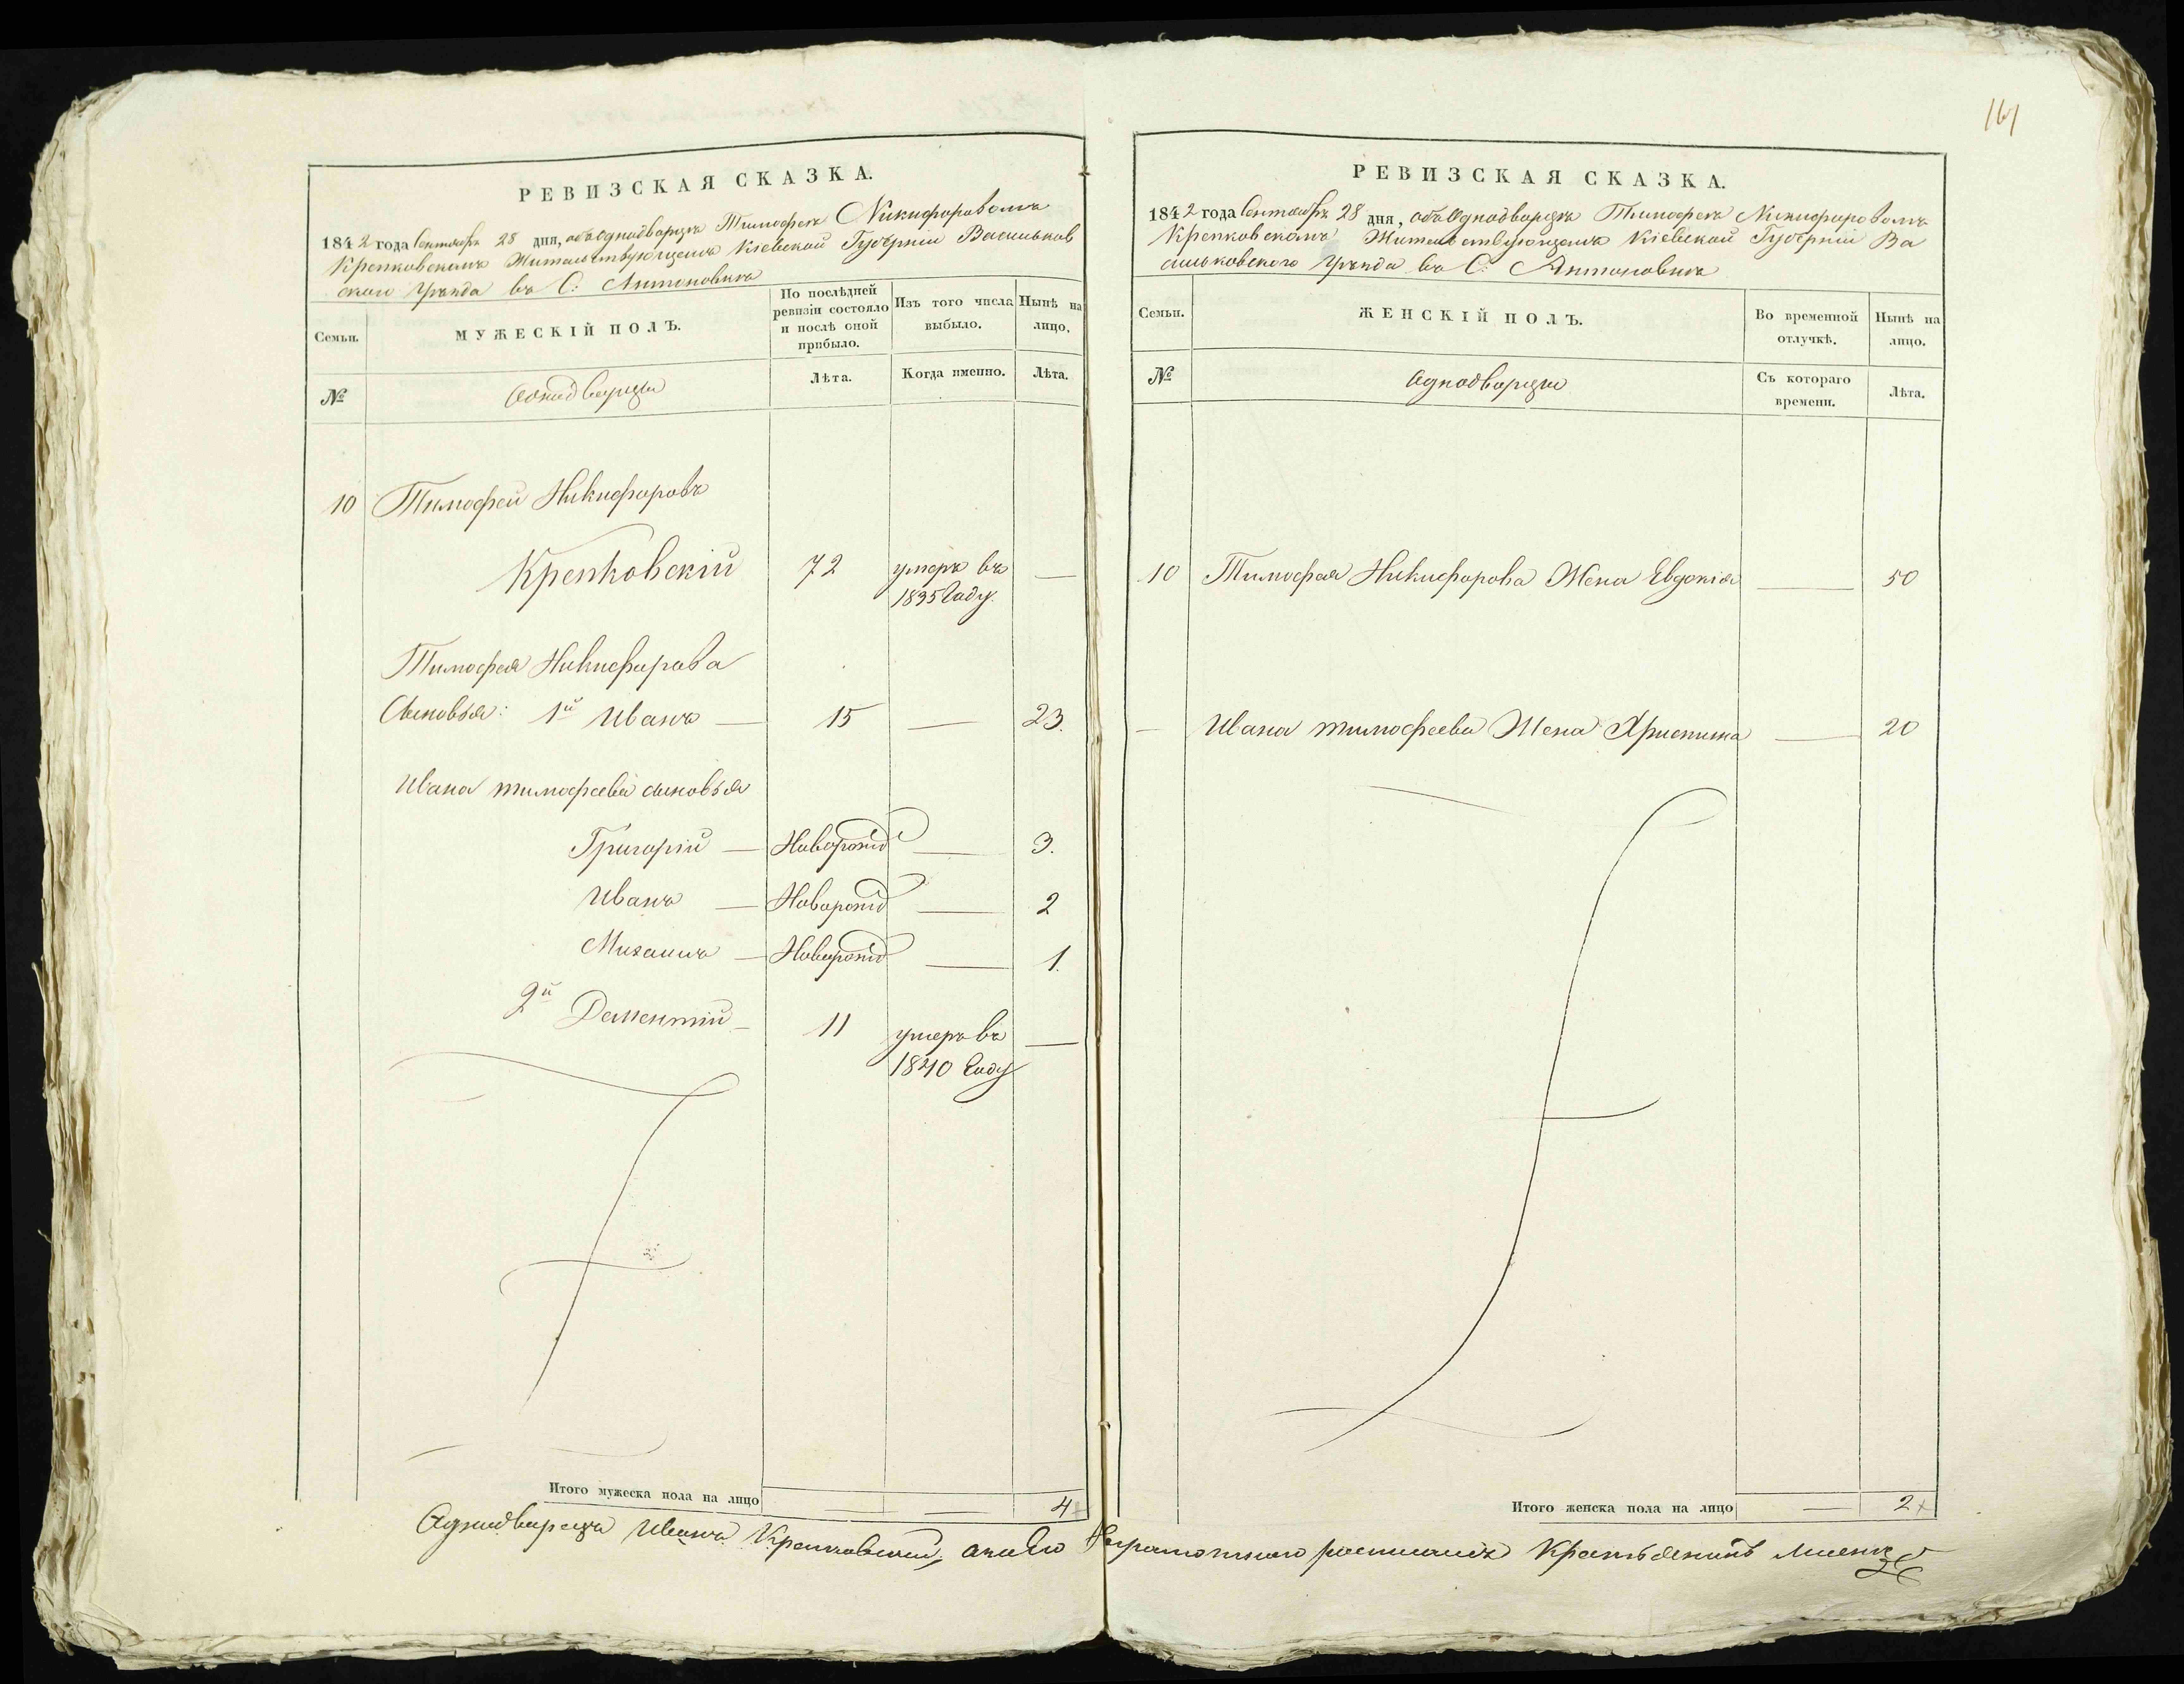 161
РЕВИЗСКАЯ СКАЗКА.
1842 года Сентября 28 дня, объ однодворце Тимофее Никифоровомъ
Крепковскомъ Жительствующемъ Кіевской Губерніи Васильков
скаго уезда въ С: Антоновке
Семьи.
МУЖЕСКІЙ ПОЛЪ.
По послѣдней ревизіи состояло и послѣ оной прибыло.
Изъ того числа выбыло.
Нынѣ на лицо.
№
Однодворцы
Лѣта.
Когда именно.
Лѣта.
10 Тимофей Никифоровъ
Крепковскій 72 умеръ въ —
1835 Году.
Тимофея Никифорова
Сыновья: 1й Иванъ — 15 — 23.
Ивана тимофеева сыновья
Григорій — Новорожд — 3.
Иванъ — Новорожд — 2
Михаилъ — Новорожд — 1.
2й Дементий — 11 умеръ въ —
1840 Году
Итого мужеска пола на лицо — — 4
РЕВИЗСКАЯ СКАЗКА.
1842 года Сентября 28 дня, объ Однодворце Тимофее Никифоровомъ
Крепковскомъ Жительствующемъ Кіевской Губерніи Ва
сильковского уезда въ С: Антоновке
Семьи.
ЖЕНСКІЙ ПОЛЪ.
Во временной отлучкѣ.
Нынѣ на лицо.
№
Однодворцы
Съ котораго времени.
Лѣта.
10 Тимофея Никифорова Жена Евдокія — 50
— Ивана тимофеева Жена Христина — 20
Итого женска пола на лицо — 2
Однодворецъ Иванъ Крепковский, а за его